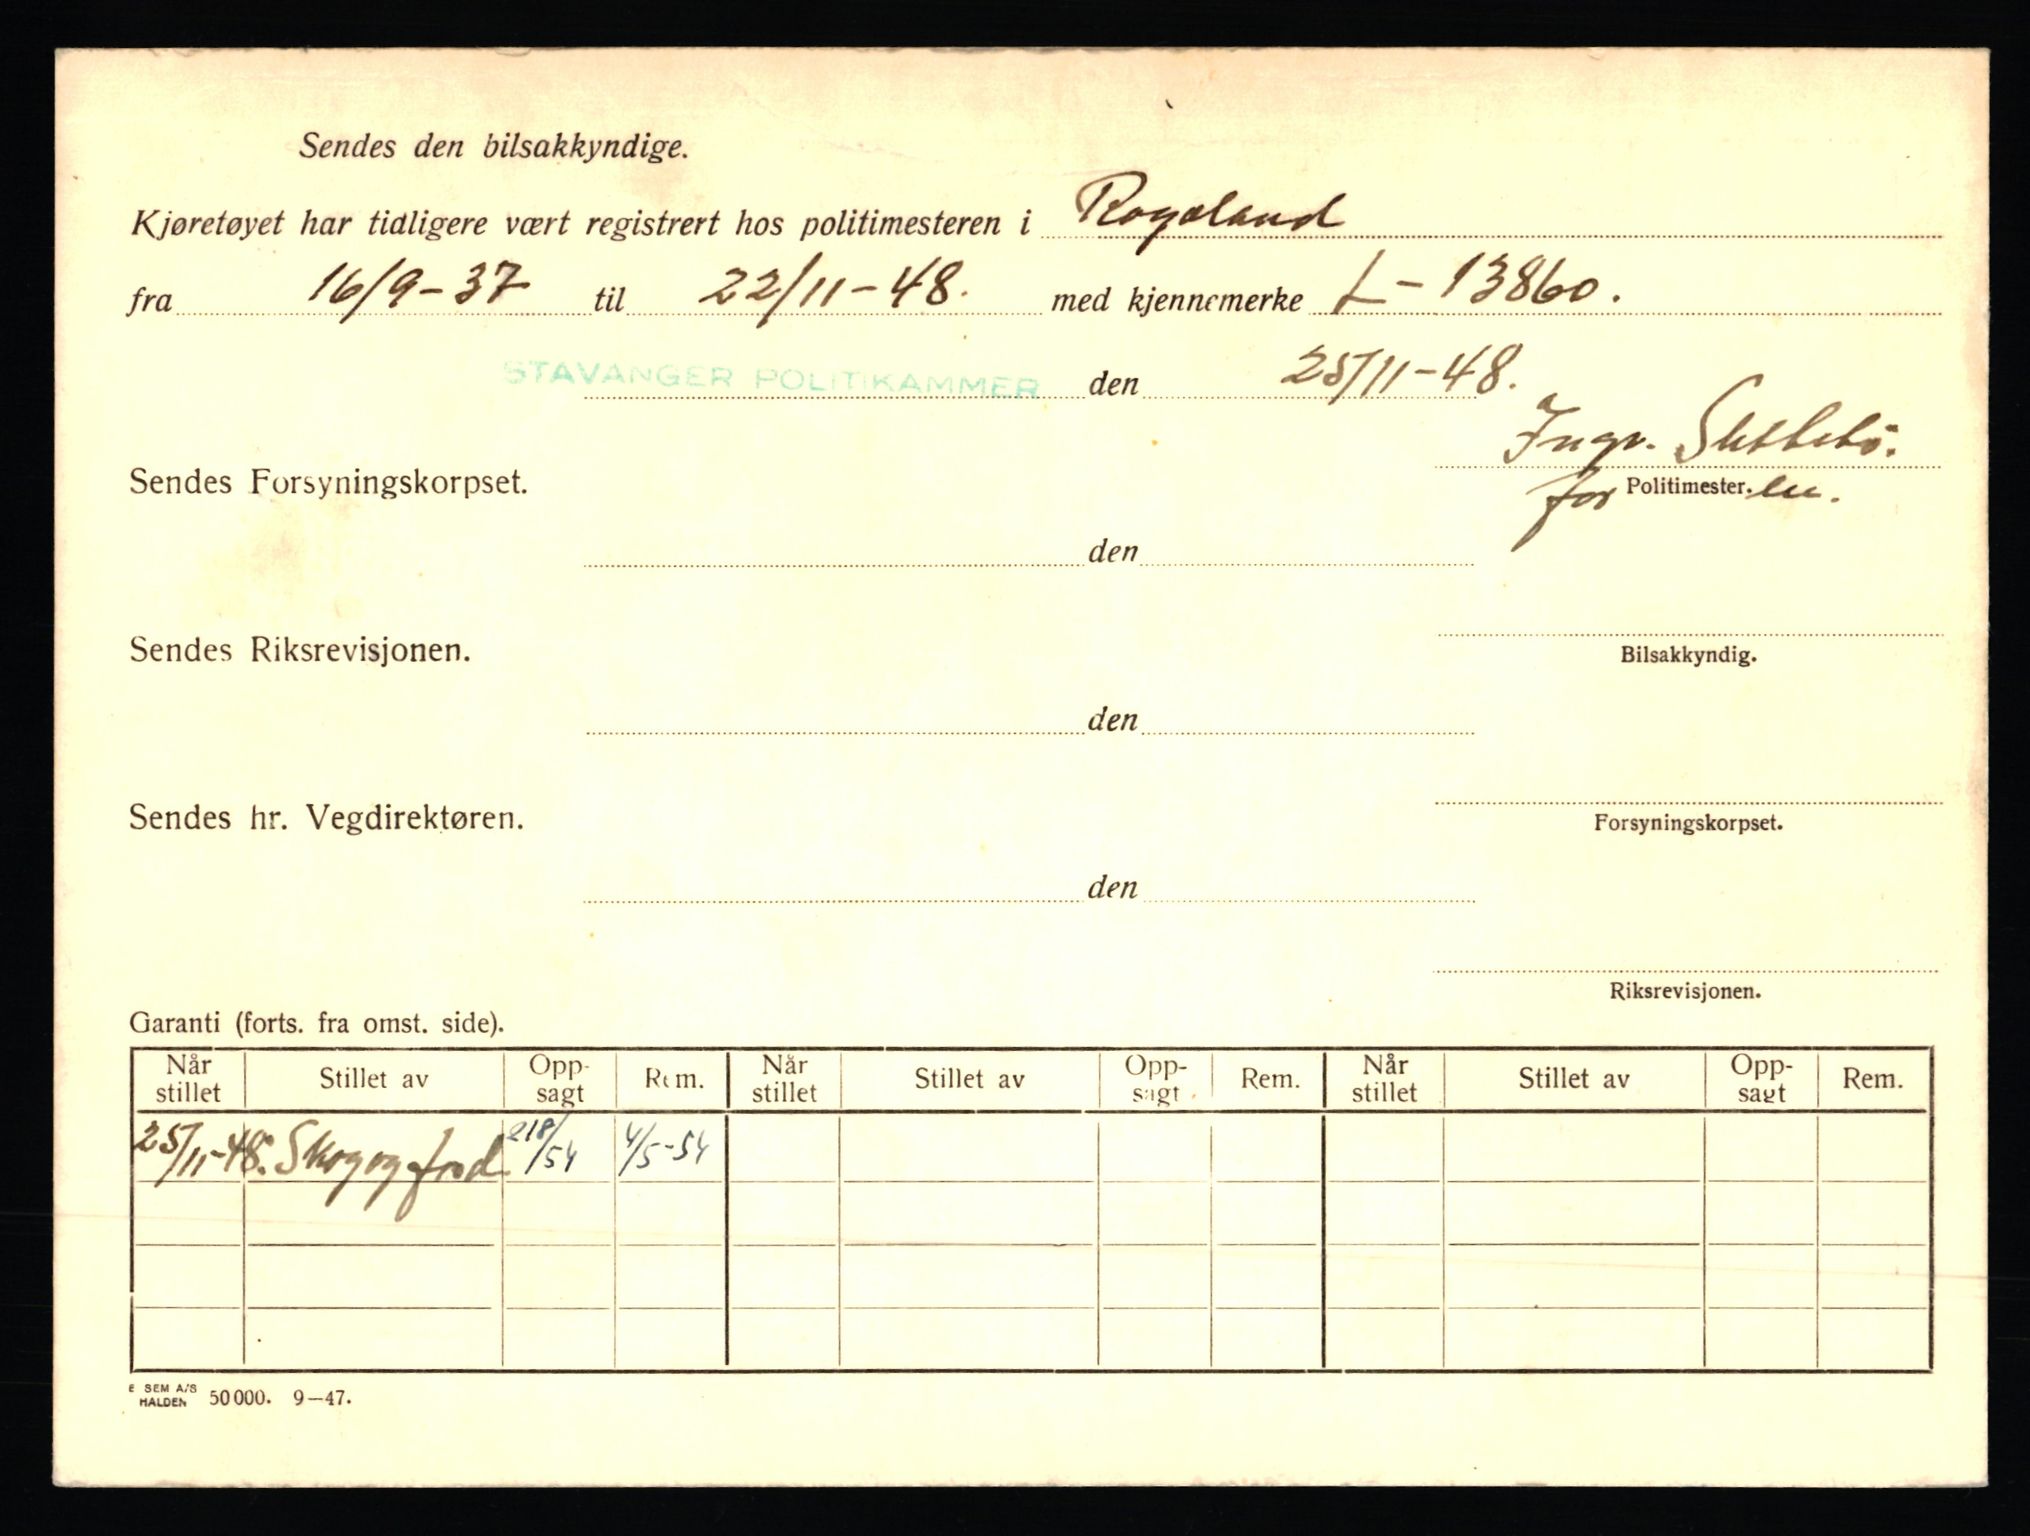 Sendes den bilsakkyndige.
Kjøretøyet har tidligere vært registrert hos politimesteren i Rogaland
fra 16/9-37 til 22/11-48. med kjennemerke L-13860.
STAVANGER POLITIKAMMER den 25/11-48.
Ingv.
Sendes Forsyningskorpset.
for Politimester.en.
den
Sendes Riksrevisjonen.
Bilsakkyndig.
den
Sendes hr. Vegdirektøren.
Forsyningskorpset.
den
Riksrevisjonen.
Garanti (forts. fra omst. side).
Når stillet Stillet av Opp-sagt Rem. Når stillet Stillet av Opp-sagt Rem. Når stillet Stillet av Opp-sagt Rem.
25/11-48. Skogogfrod 218/54 4/5-54
E SEM A/S
HALDEN 50000. 9-47.